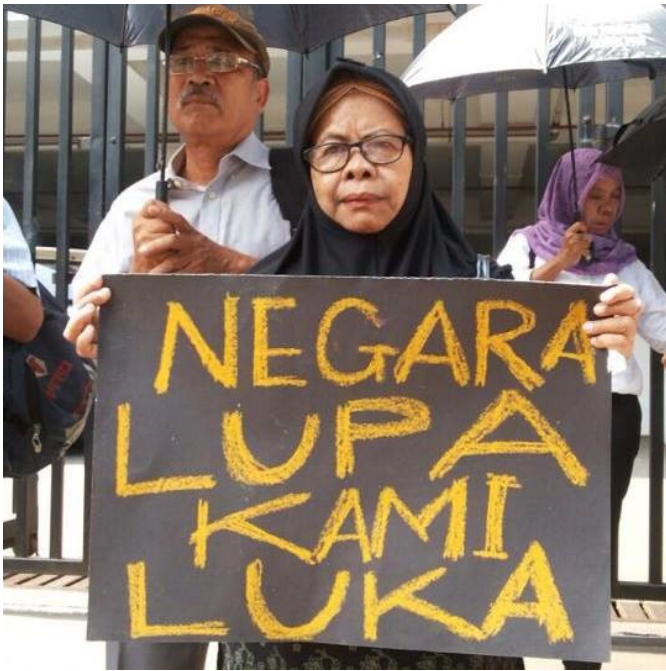 NEGARA
LUPA
KAMI
LUKA